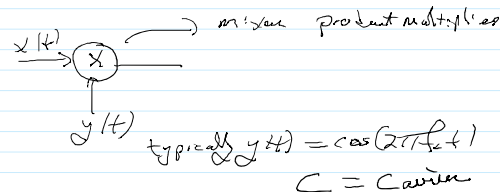 x(t)
mixer product multiplier
X
y(t)
typically y(t) = cos(2πf_c t)
C = Carrier